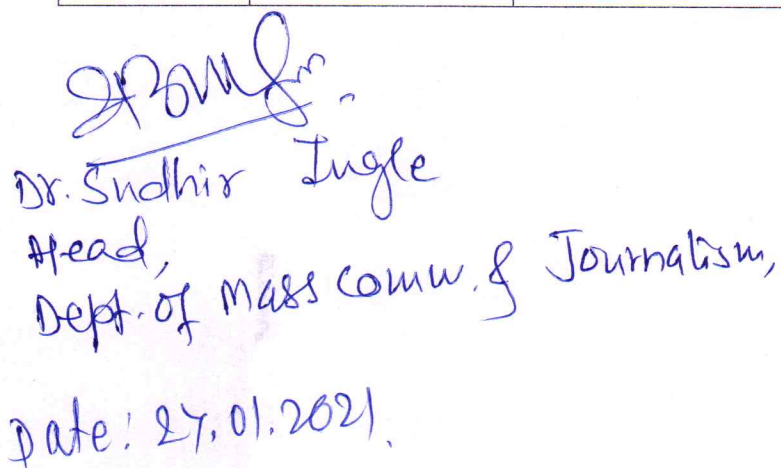 Dr. Sudhir Ingle
Head,
Dept. of Mass comm. & Journalism,
Date: 27.01.2021.